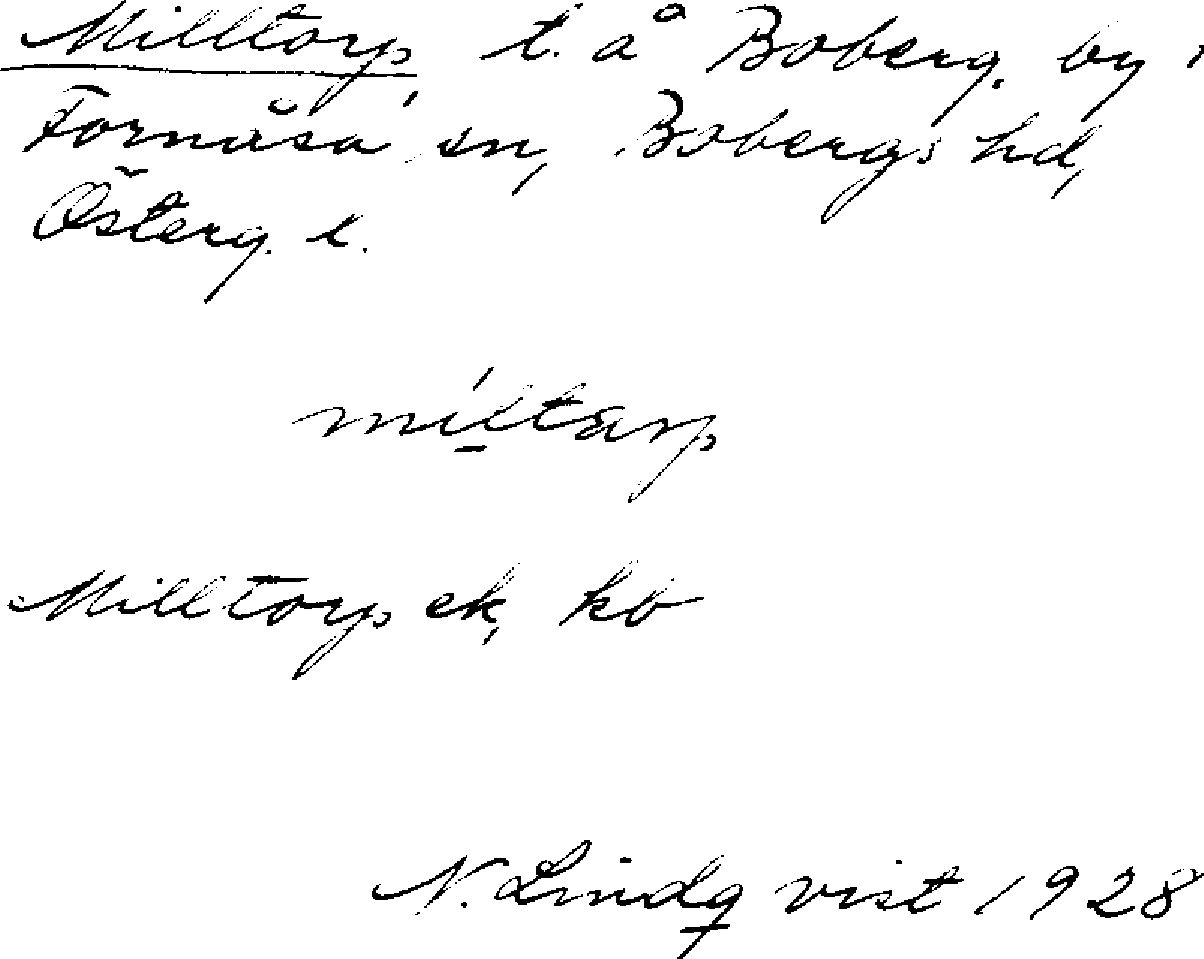 Milltorp, t. å Boberg. by i
Fornåsa sn, Bobergs hd,
Österg. l.
miltarp
Milltorp ek, kb
N. Lindqvist 1928